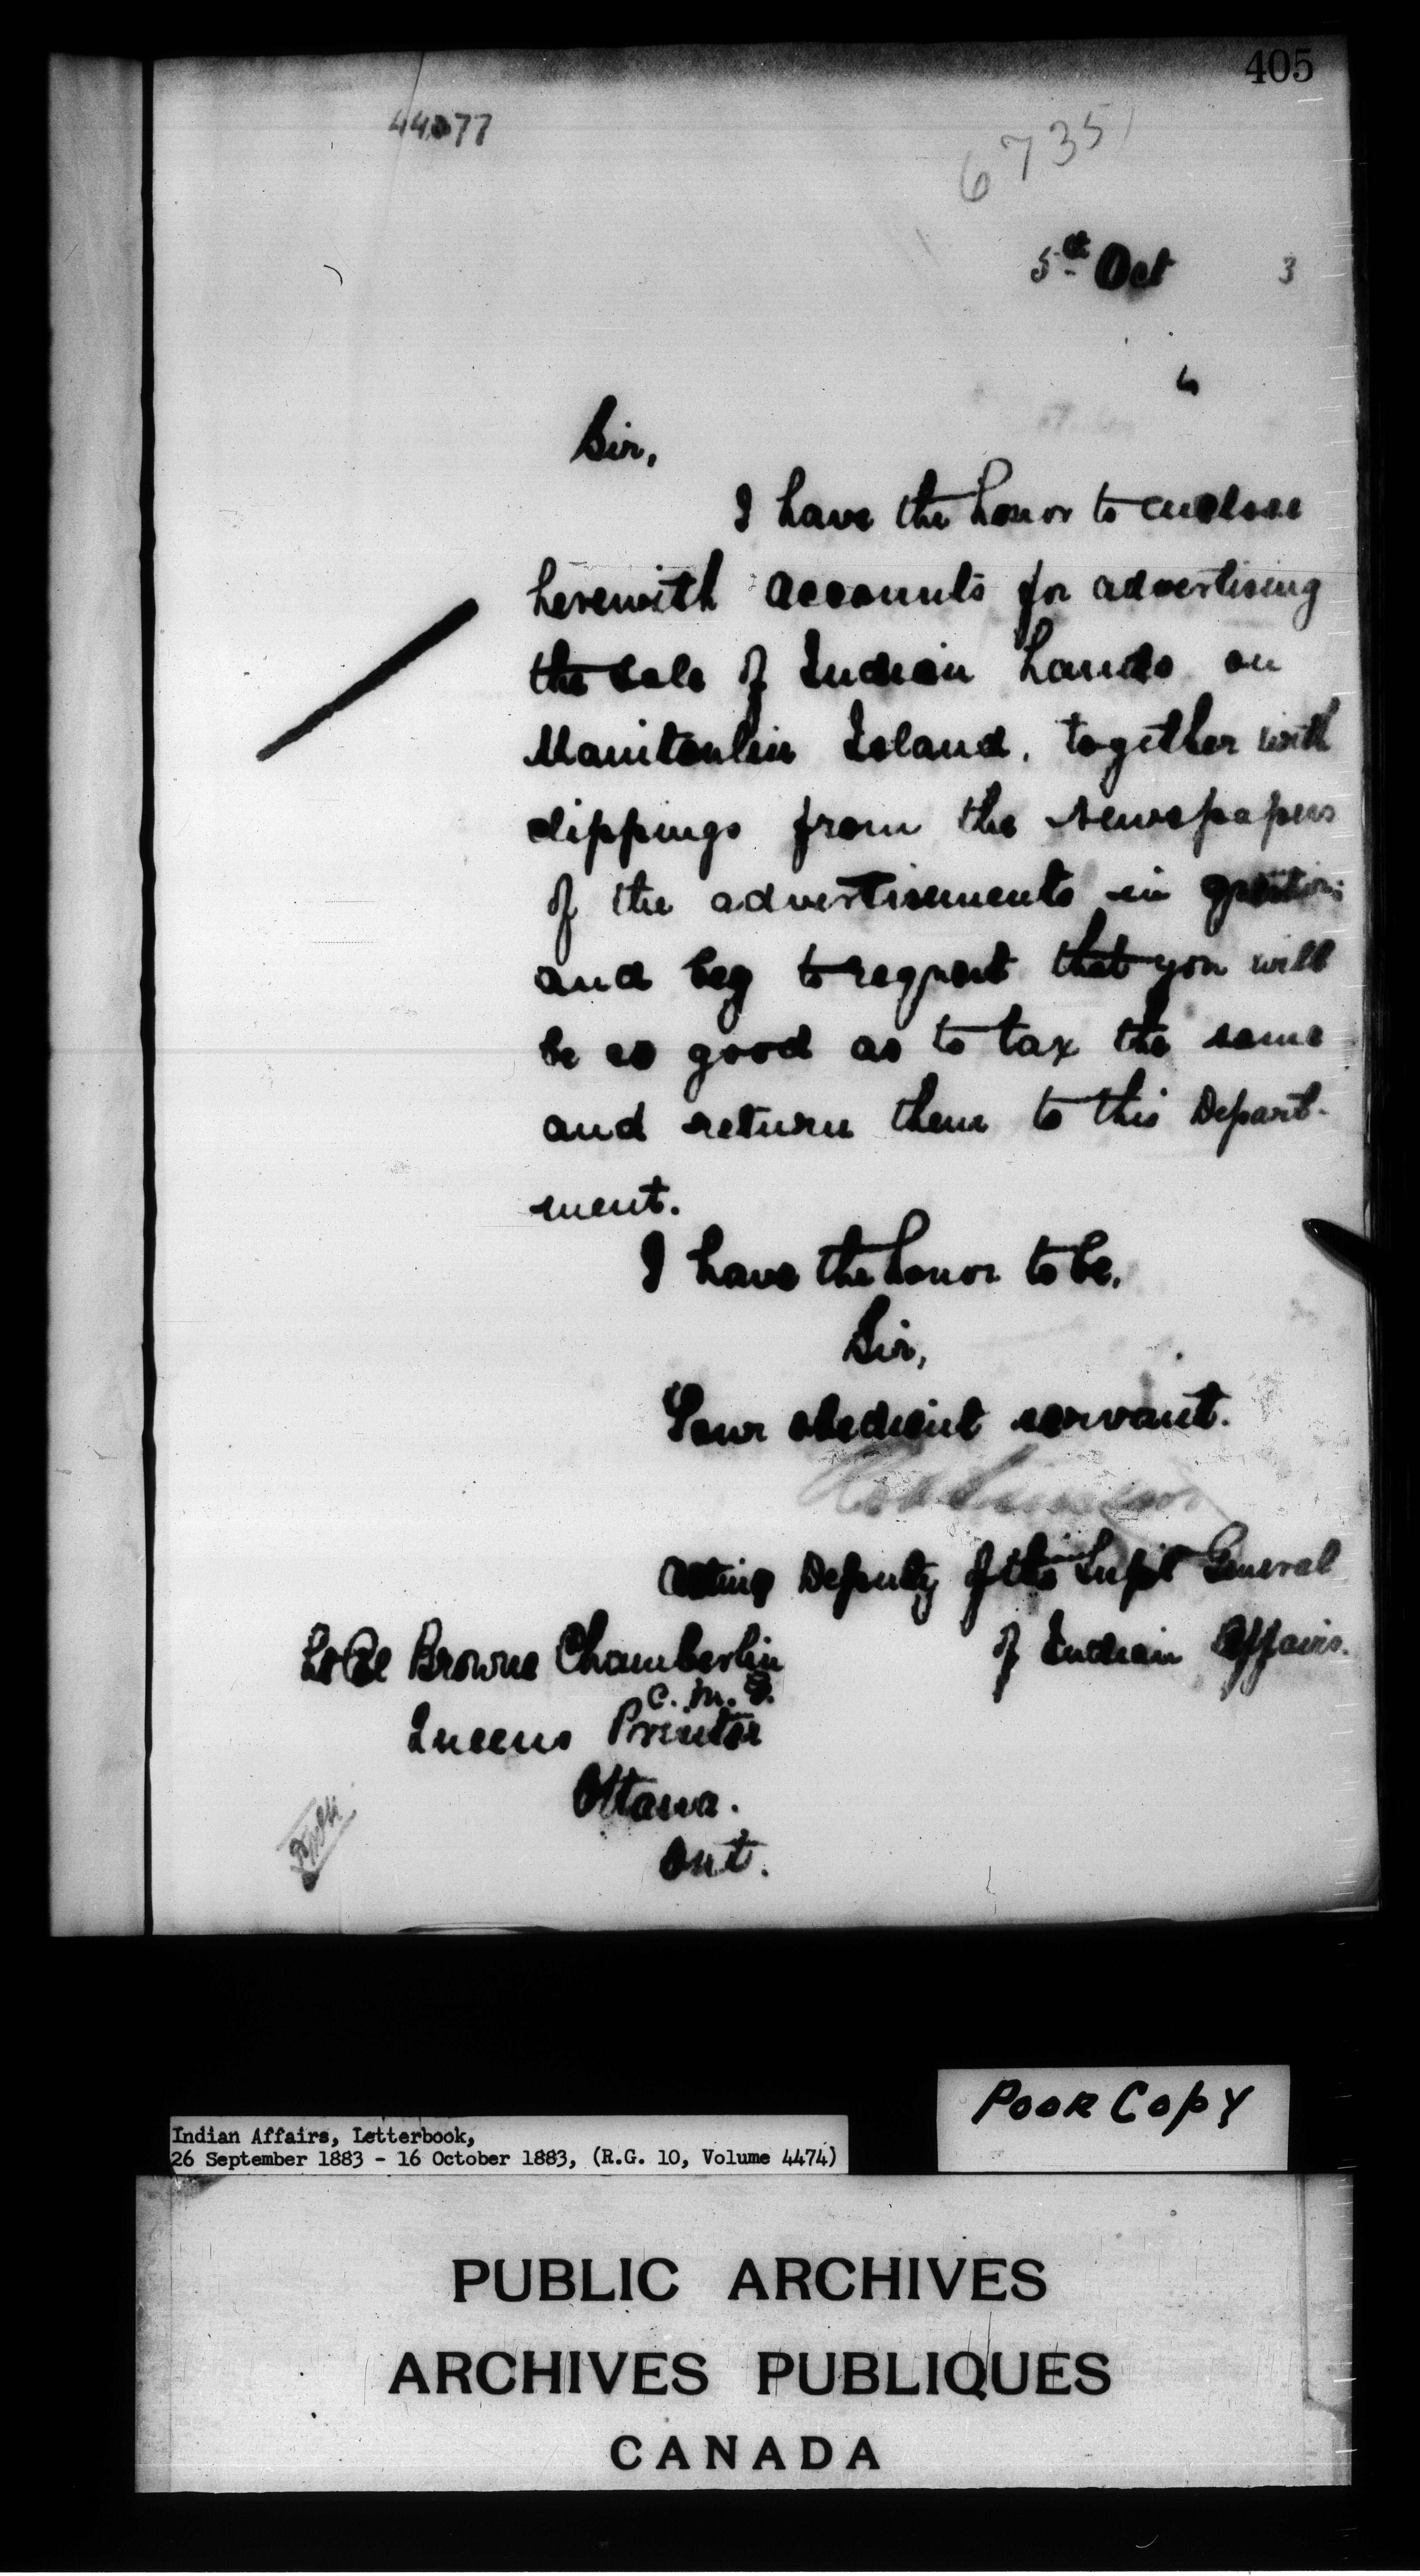 405
6735
5th Oct 3
Sir,
I have the honor to enclose
herewith accounts for advertising
the sale of Indian Lands on
Manitoulin Island, together with
clippings from the newspapers
of the advertisements in question
and beg to request that you will
be so good as to tax the same
and return them to this Depart-
ment.
I have the honor to be,
Sir,
Your obedient servant.
Acting Deputy of the Supt General
of Indian Affairs.
Lt Col Browne Chamberlin
C. M. G.
Queens Printer
Ottawa.
Ont.
POOR COPY
Indian Affairs, Letterbook,
26 September 1883 - 16 October 1883, (R.G. 10, Volume 4474)
PUBLIC ARCHIVES
ARCHIVES PUBLIQUES
CANADA